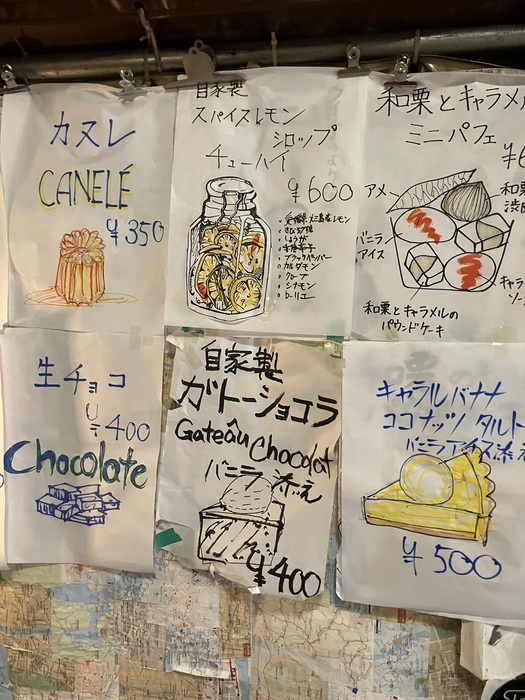 カヌレ
CANELÉ
¥350
自家製
スパイスレモン
シロップ
チューハイ
¥600
・愛媛県大三島産レモン
・きび砂糖
・しょうが
・青唐辛子
・ブラックペッパー
・カルダモン
・クローブ
・シナモン
・ローリエ
和栗とキャラメル
ミニパフェ
アメ
バニラ
アイス
和栗
渋皮
キャラ
ソー
和栗とキャラメルの
パウンドケーキ
生チョコ
¥400
Chocolate
自家製
ガトーショコラ
Gateâu Chocolat
バニラ添え
¥400
キャラルバナナ
ココナッツタルト
バニラアイス添え
¥500